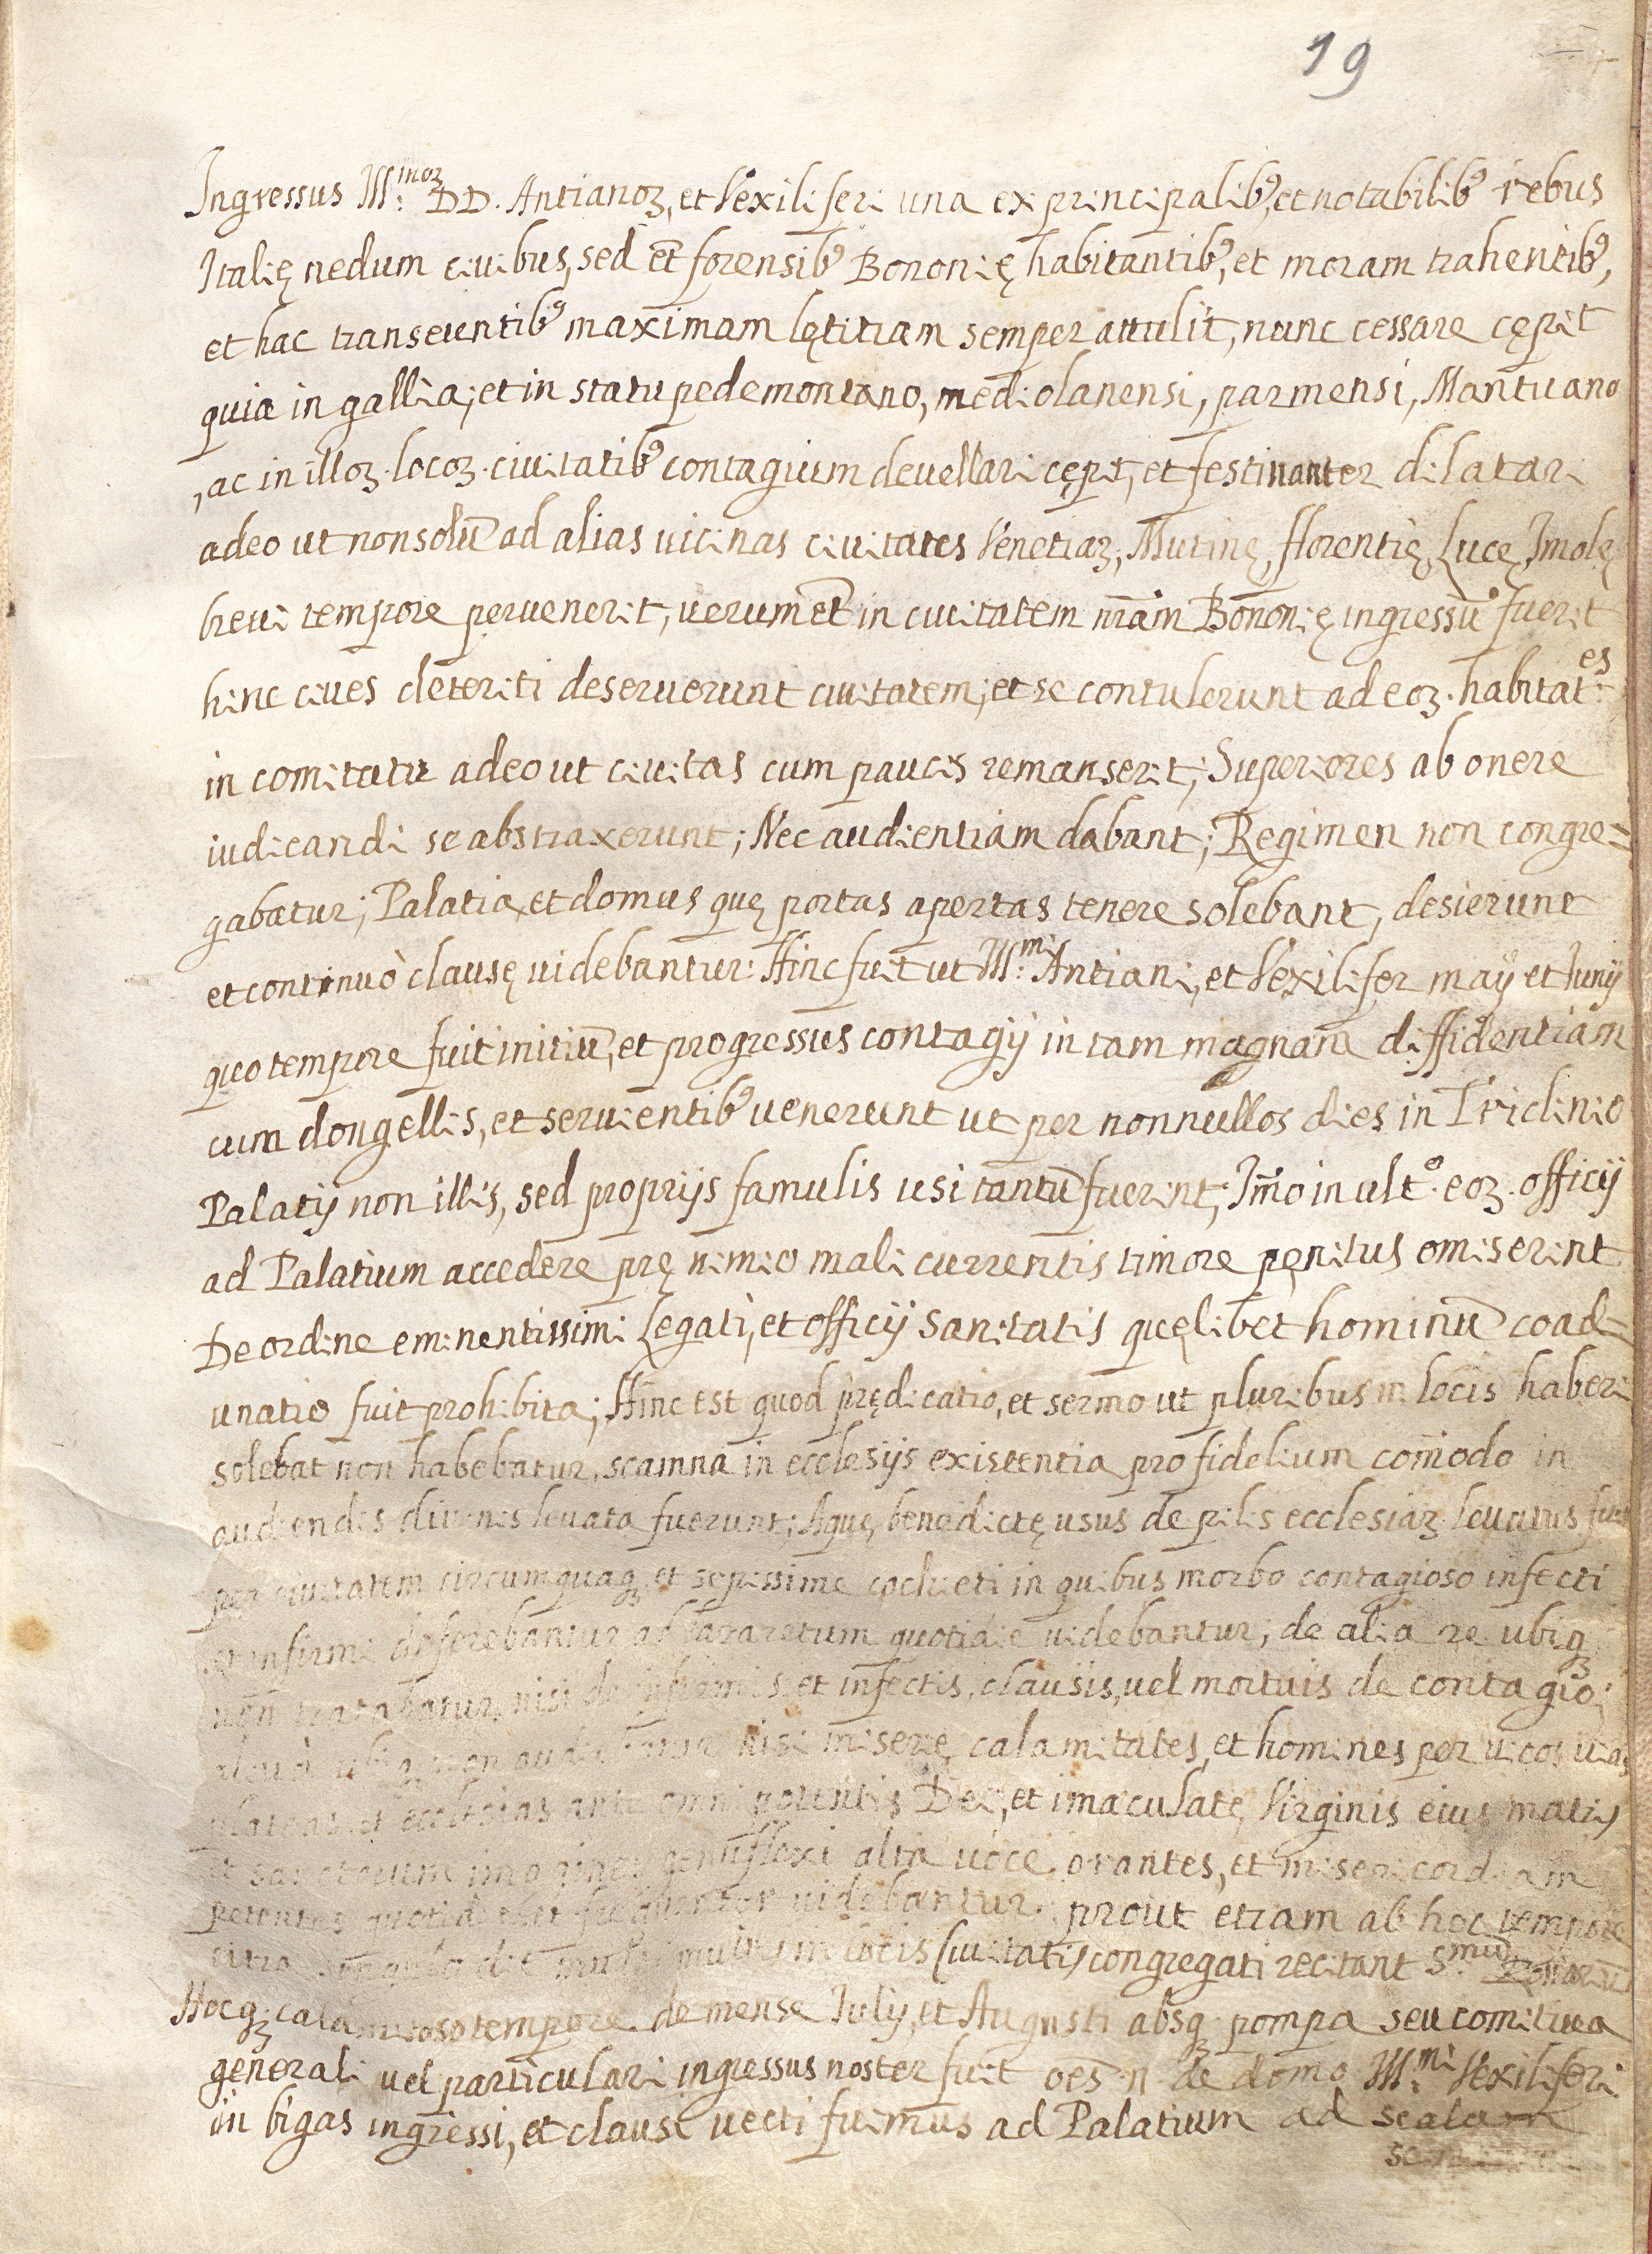 19
Ingressus Ill:moꝝ DD. Antianoꝝ, et Vexiliferi una ex principalibꝰ, et notabilibꝰ rebus
Italię nedum ciuibus, sed et̃ forensibꝰ Bononię habitantibꝰ, et moram trahentibꝰ,
et hac transeuntibꝰ maximam lętitiam semper attulit, nunc cessare cępit
quia in gallia, et in statu pedemontano, mediolanensi, parmensi, Mantuano
, ac in illoꝝ. locoꝝ. ciuitatibꝰ contagium deuellari cępit, et festinanter dilatari
adeo ut non solũ ad alias uicinas ciuitates Venetiaꝝ, Mutinę, florentię, Lucę, Imolę
breui tempore peruenerit, uerum et̃ in ciuitatem nr̃am Bononię ingressũ fuerit
hinc ciues deteriti deseruerunt ciuitatem, et se contulerunt ad eoꝝ. habitat:es
in comitatu adeo ut ciuitas cum paucis remanserit; Superiores ab onere
iudicandi se abstraxerunt; Nec audientiam dabant; Regimen non congre=
gabatur; Palatia, et domus quę portas apertas tenere solebant, desierunt
et continuò clausę uidebantur: Hinc fuit ut Ill:mi Antiani, et Vexilifer maij et Junij
quo tempore fuit initiũ, et progressus contagij in tam magnam diffidentiam
cum dongellis, et seruientibꝰ uenerunt ut per nonnullos dies in Triclinio
Palatij non illis, sed proprijs famulis usi tantũ fuerint; Im̃o in ult.º eoꝝ. officij
ad Palatium accedere prę nimio mali currentis timore pęnitus omiserint
De ordine eminentissimi Legati, et officij Sanitatis quęlibet hominũ coad=
unatio fuit prohibita; Hinc est quod prędicatio, et sermo ut pluribus in locis haberi
solebat non habebatur, scamna in ecclesijs existentia pro fidelium com̃odo in
audiendis diuinis leuata fuerunt; Aquę benedictę usus de pilis ecclesiaꝝ leuatus fuit
per ciuitatem circumquaqꝫ et sepissime cochieti in quibus morbo contagioso infecti
et infirmi deferebantur ad lazaretum quotidie uidebantur; de alia re ubiqꝫ
non tratabatur, nisi de infirmis et infectis, clausis, uel mortuis de contagio;
ubiqꝫ non nisi miserię, calamitates, et homines per uicos uias
plateas et ecclesias ante omnipotentis Dei, et imaculatę Virginis eius matris
et sanctorum imagines genuflexi alta uoce orantes, et misericordiam
petentes quotidie et frequenter uidebantur; prout etiam ab hoc tempore
citra multis in locis Ciuitatis congregati recitant S:mũ
Hocqꝫ calamitoso tempore de mense Iulij, et Augusti absqꝫ pompa seu comitiua
generali uel particulari ingressus noster fuit oẽs n. de domo Ill:mi Vexiliferi
in bigas ingressi, et clausi uecti fuimus ad Palatium ad scalam